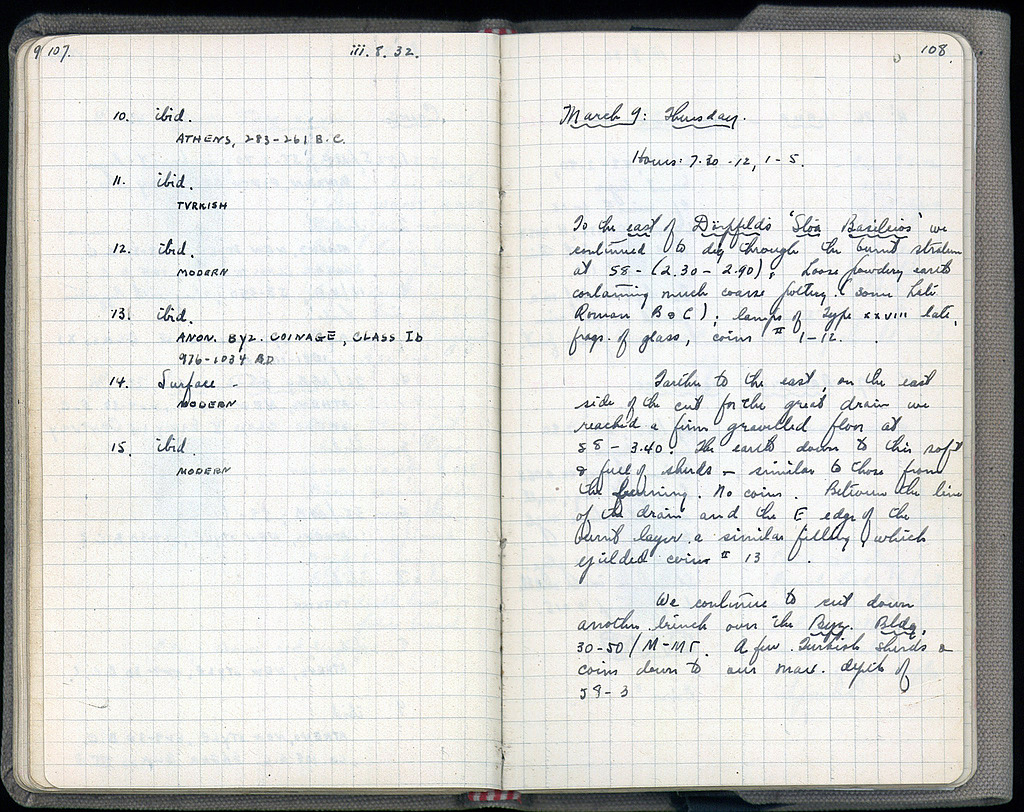 9 107.
iii. 8. 32.
10. ibid.
ATHENS, 283-261 B.C.
11. ibid.
TVRKISH
12. ibid.
MODERN
13. ibid.
ANON. BYZ. COINAGE, CLASS Ib
976-1034 AD
14. Surface -
MODERN
15. ibid.
MODERN
108
March 9: Thursday.
Hours: 7.30 - 12, 1 - 5.
To the east of Dörpfeld's 'Stoa Basileios' we
continued to dig through the burnt stratum
at 58 - (2.30 - 2.90). Loose powdery earth
containing much coarse pottery (some Late
Roman B & C); lamps of Type XXVIII late,
frags. of glass, coins # 1-12.
Farther to the east, on the east
side of the cut for the great drain we
reached a firm gravelled floor at
58 - 3.40. The earth down to this soft
& full of sherds - similar to those from
the burning. No coins. Between the line
of the drain and the E edge of the
burnt layer a similar filling which
yielded coins # 13
We continue to cut down
another trench over the Byz. Bldg,
30-50/M-MΓ. A few Turkish sherds &
coins down to our max. depth of
58-3